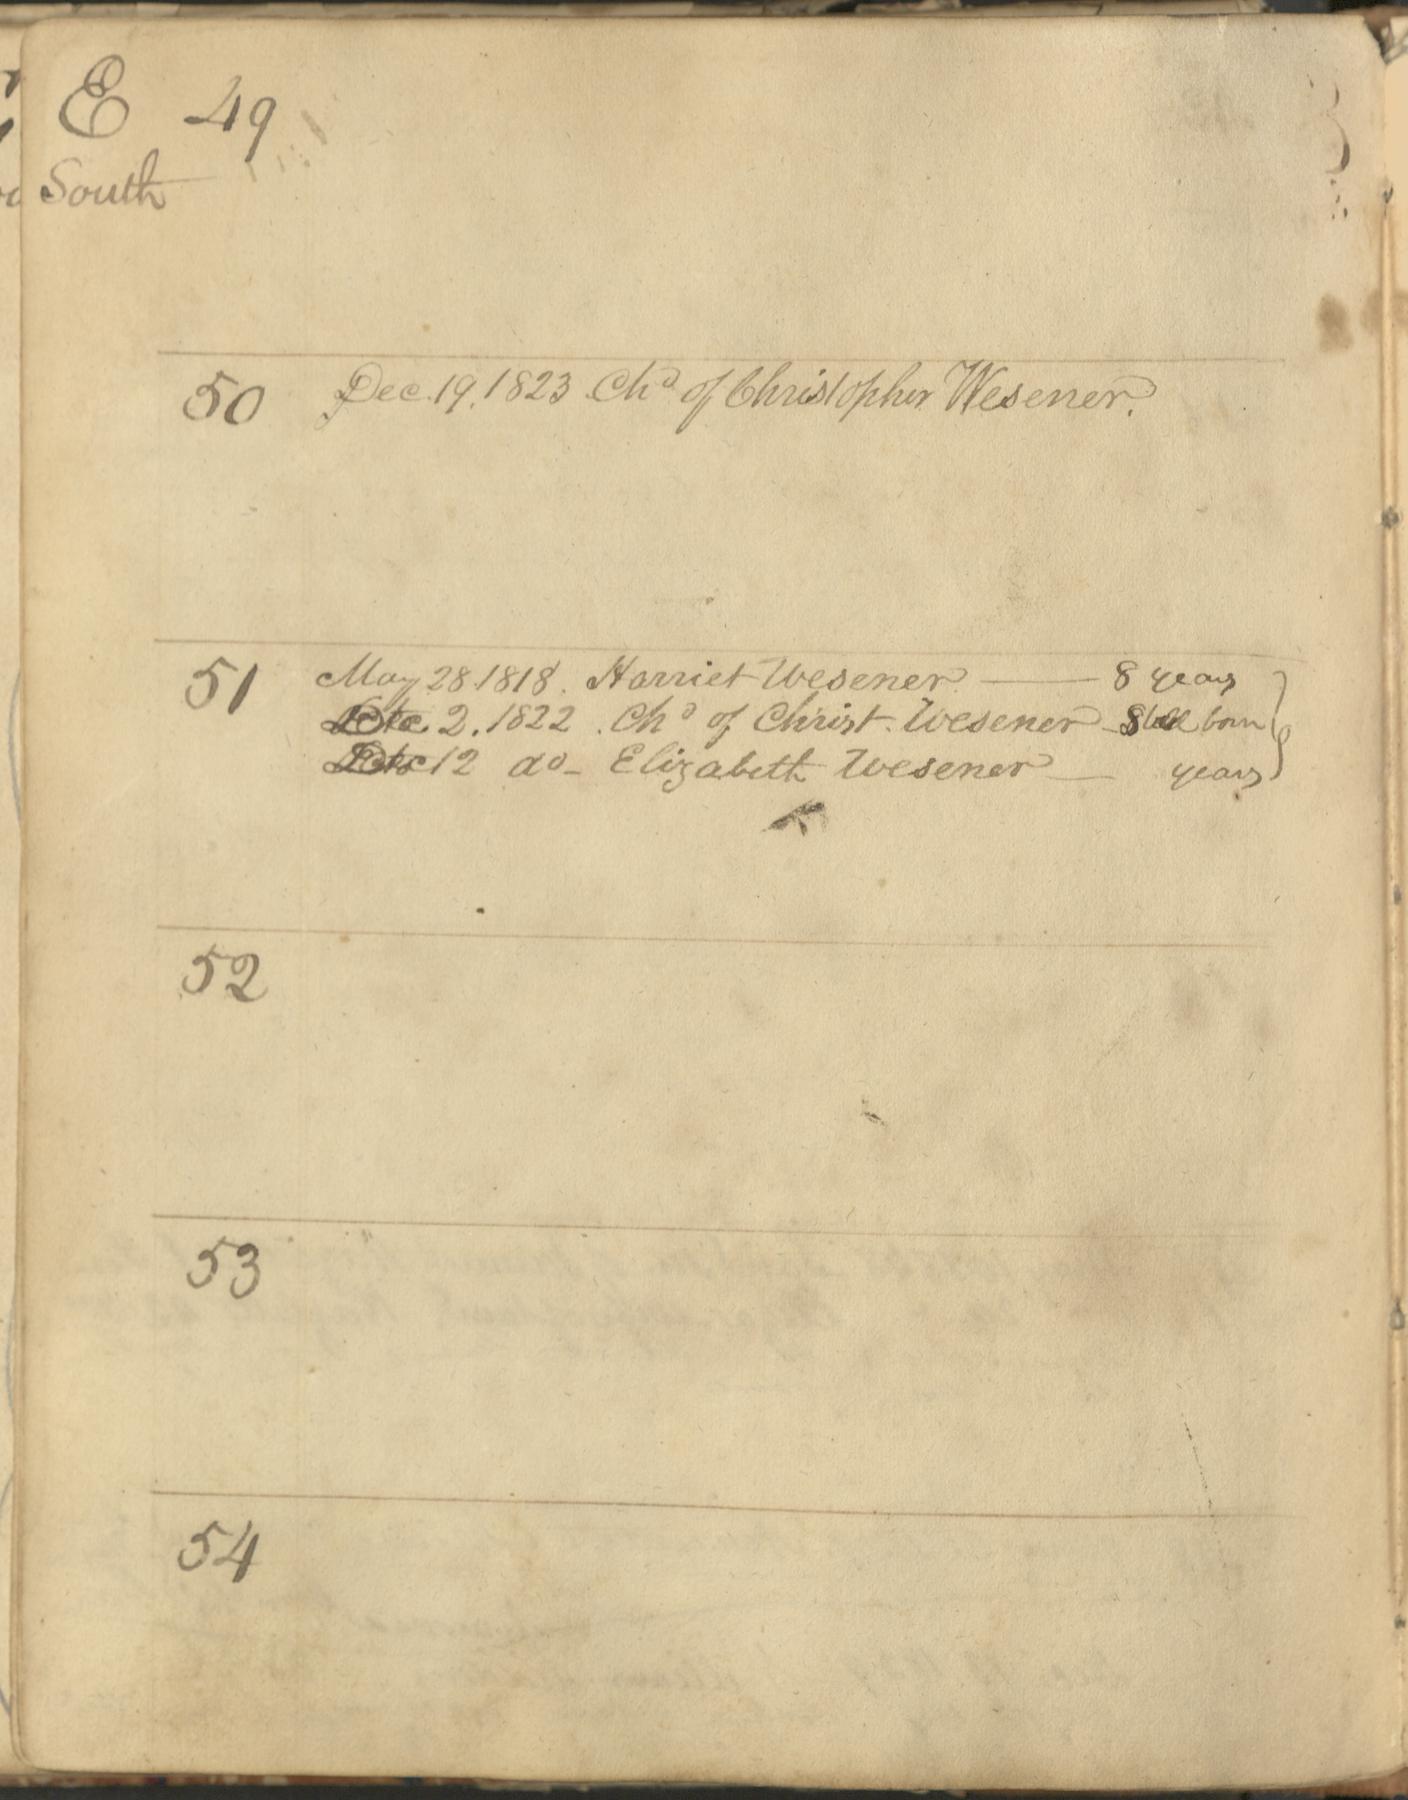 E 49
South
50 Dec. 19. 1823 Chd. of Christopher Wesener.
51 May 28. 1818. Harriet Wesener — 8 years
2. 1822. Chd of Christ. Wesener Still born
12 do — Elizabeth Wesener — years
52
53
54